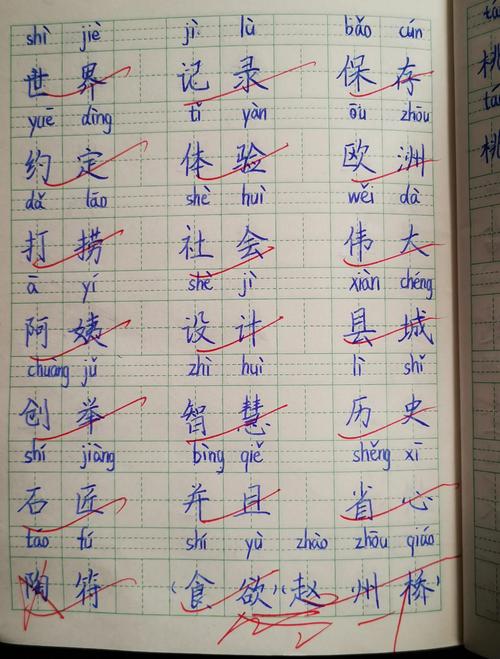 shì jiè jì lù bǎo cún
世界 记录 保存
yuē dìng tǐ yàn ōu zhōu
约定 体验 欧洲
dǎ lāo shè huì wěi dà
打捞 社会 伟大
ā yí shè jì xiàn chéng
阿姨 设计 县城
chuàng jǔ zhì huì lì shǐ
创举 智慧 历史
shí jiàng bìng qiě shěng xī
石匠 并且 省心
táo fú shí yù zhào zhōu qiáo
陶符 (食欲)(赵州桥)
桃
桃